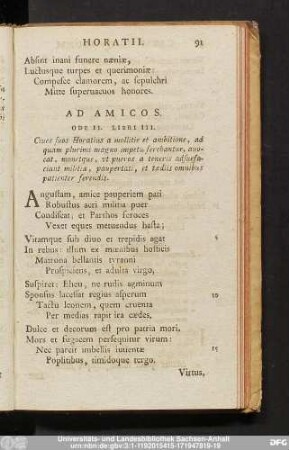 HORATII. 91
Absint inani funere næniæ,
Luctusque turpes et querimoniæ:
Compesce clamorem, ac sepulchri
Mitte supervacuos honores.
AD AMICOS.
ODE II. LIBRI III.
Cives suos Horatius a mollitie et ambitione, ad
quam plurimi magno impetu ferebantur, avo-
cat, monetque, ut pueros a teneris adsuefa-
ciant militiæ, paupertati, et tædiis omnibus
patienter ferendis.
Angustam, amice pauperiem pati
Robustus acri militia puer
Condiscat, et Parthos feroces
Vexet eques metuendus hasta;
Vitamque sub divo et trepidis agat 5
In rebus: illum ex mœnibus hosticis
Matrona bellantis tyranni
Prospiciens, et adulta virgo,
Suspiret: Eheu, ne rudis agminum
Sponsus lacessat regius asperum 10
Tactu leonem, quem cruenta
Per medias rapit ira cædes.
Dulce et decorum est pro patria mori,
Mors et fugacem persequitur virum:
Nec parcit imbellis iuventæ 15
Poplitibus, timidoque tergo.
Virtus,
Universitäts- und Landesbibliothek Sachsen-Anhalt
urn:nbn:de:gbv:3:1-1192015415-171947819-19